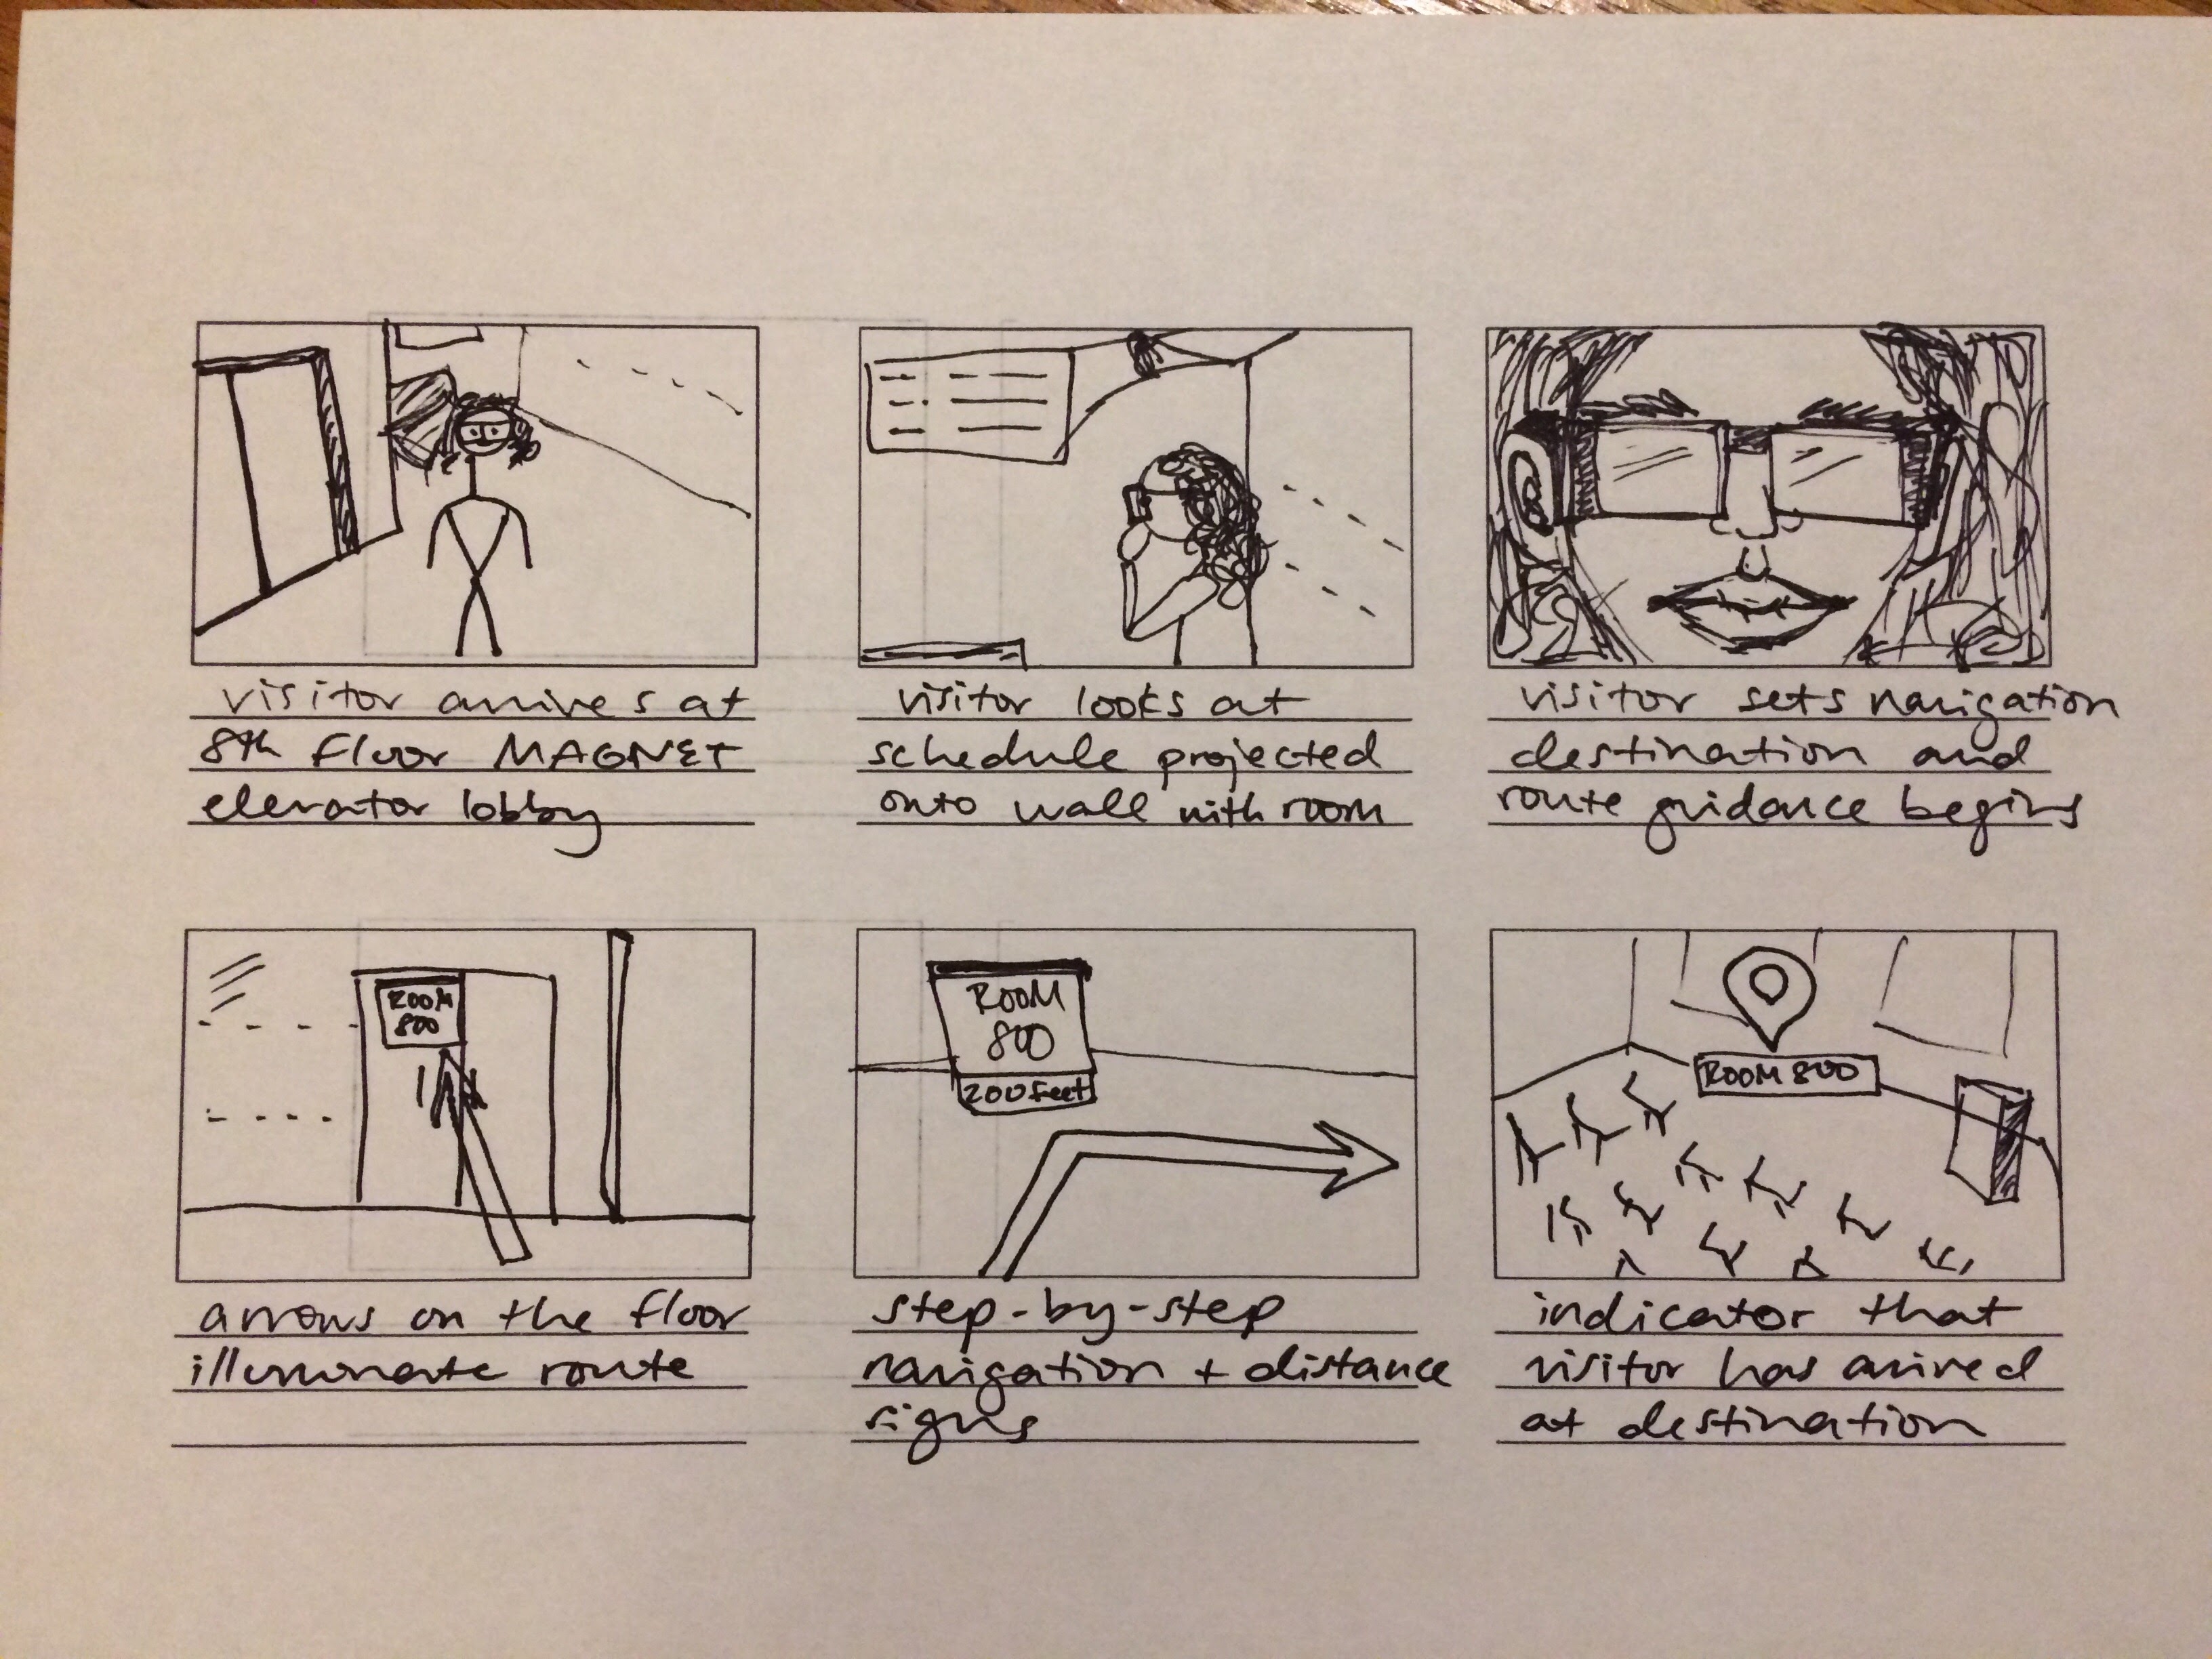 visitor arrives at
8th floor MAGNET
elevator lobby
visitor looks at
schedule projected
onto wall with room
visitor sets navigation
destination and
route guidance begins
ROOM
800
arrows on the floor
illuminate route
ROOM
800
200 feet
step-by-step
navigation + distance
signs
ROOM 800
indicator that
visitor has arrived
at destination